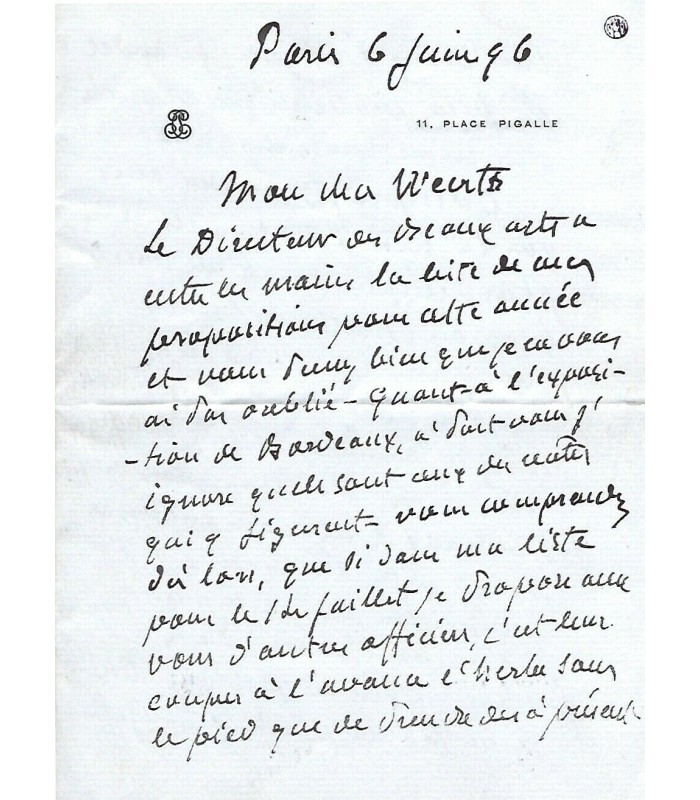 Paris 6 Juin 96
11, PLACE PIGALLE
Mon cher Weerts
Le Directeur des Beaux arts a
entre les mains la liste de mes
propositions pour cette année
et vous pensez bien que je ne vous
ai pas oublié - quant à l'exposi-
-tion de Bordeaux, à part vous j'
ignore quels sont ceux des nôtres
qui y figurent - vous comprendrez
dès lors, que si dans ma liste
pour le 14 Juillet je propose avec
vous d'autres officiers, c'est leur
couper à l'avance l'herbe sous
le pied que de prendre dès à présent